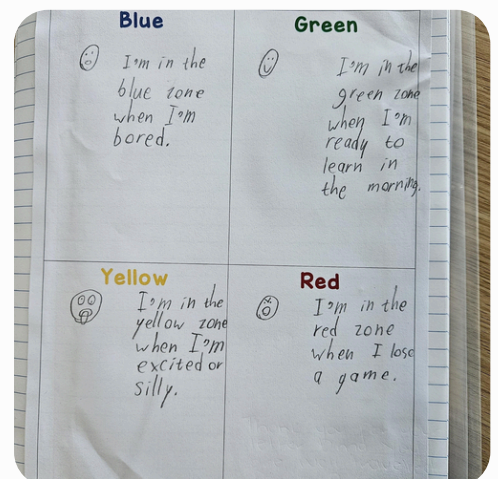 Blue
I'm in the
blue zone
when I'm
bored.
Green
I'm in the
green zone
when I'm
ready to
learn in
the morning.
Yellow
I'm in the
yellow zone
when I'm
excited or
silly.
Red
I'm in the
red zone
when I lose
a game.